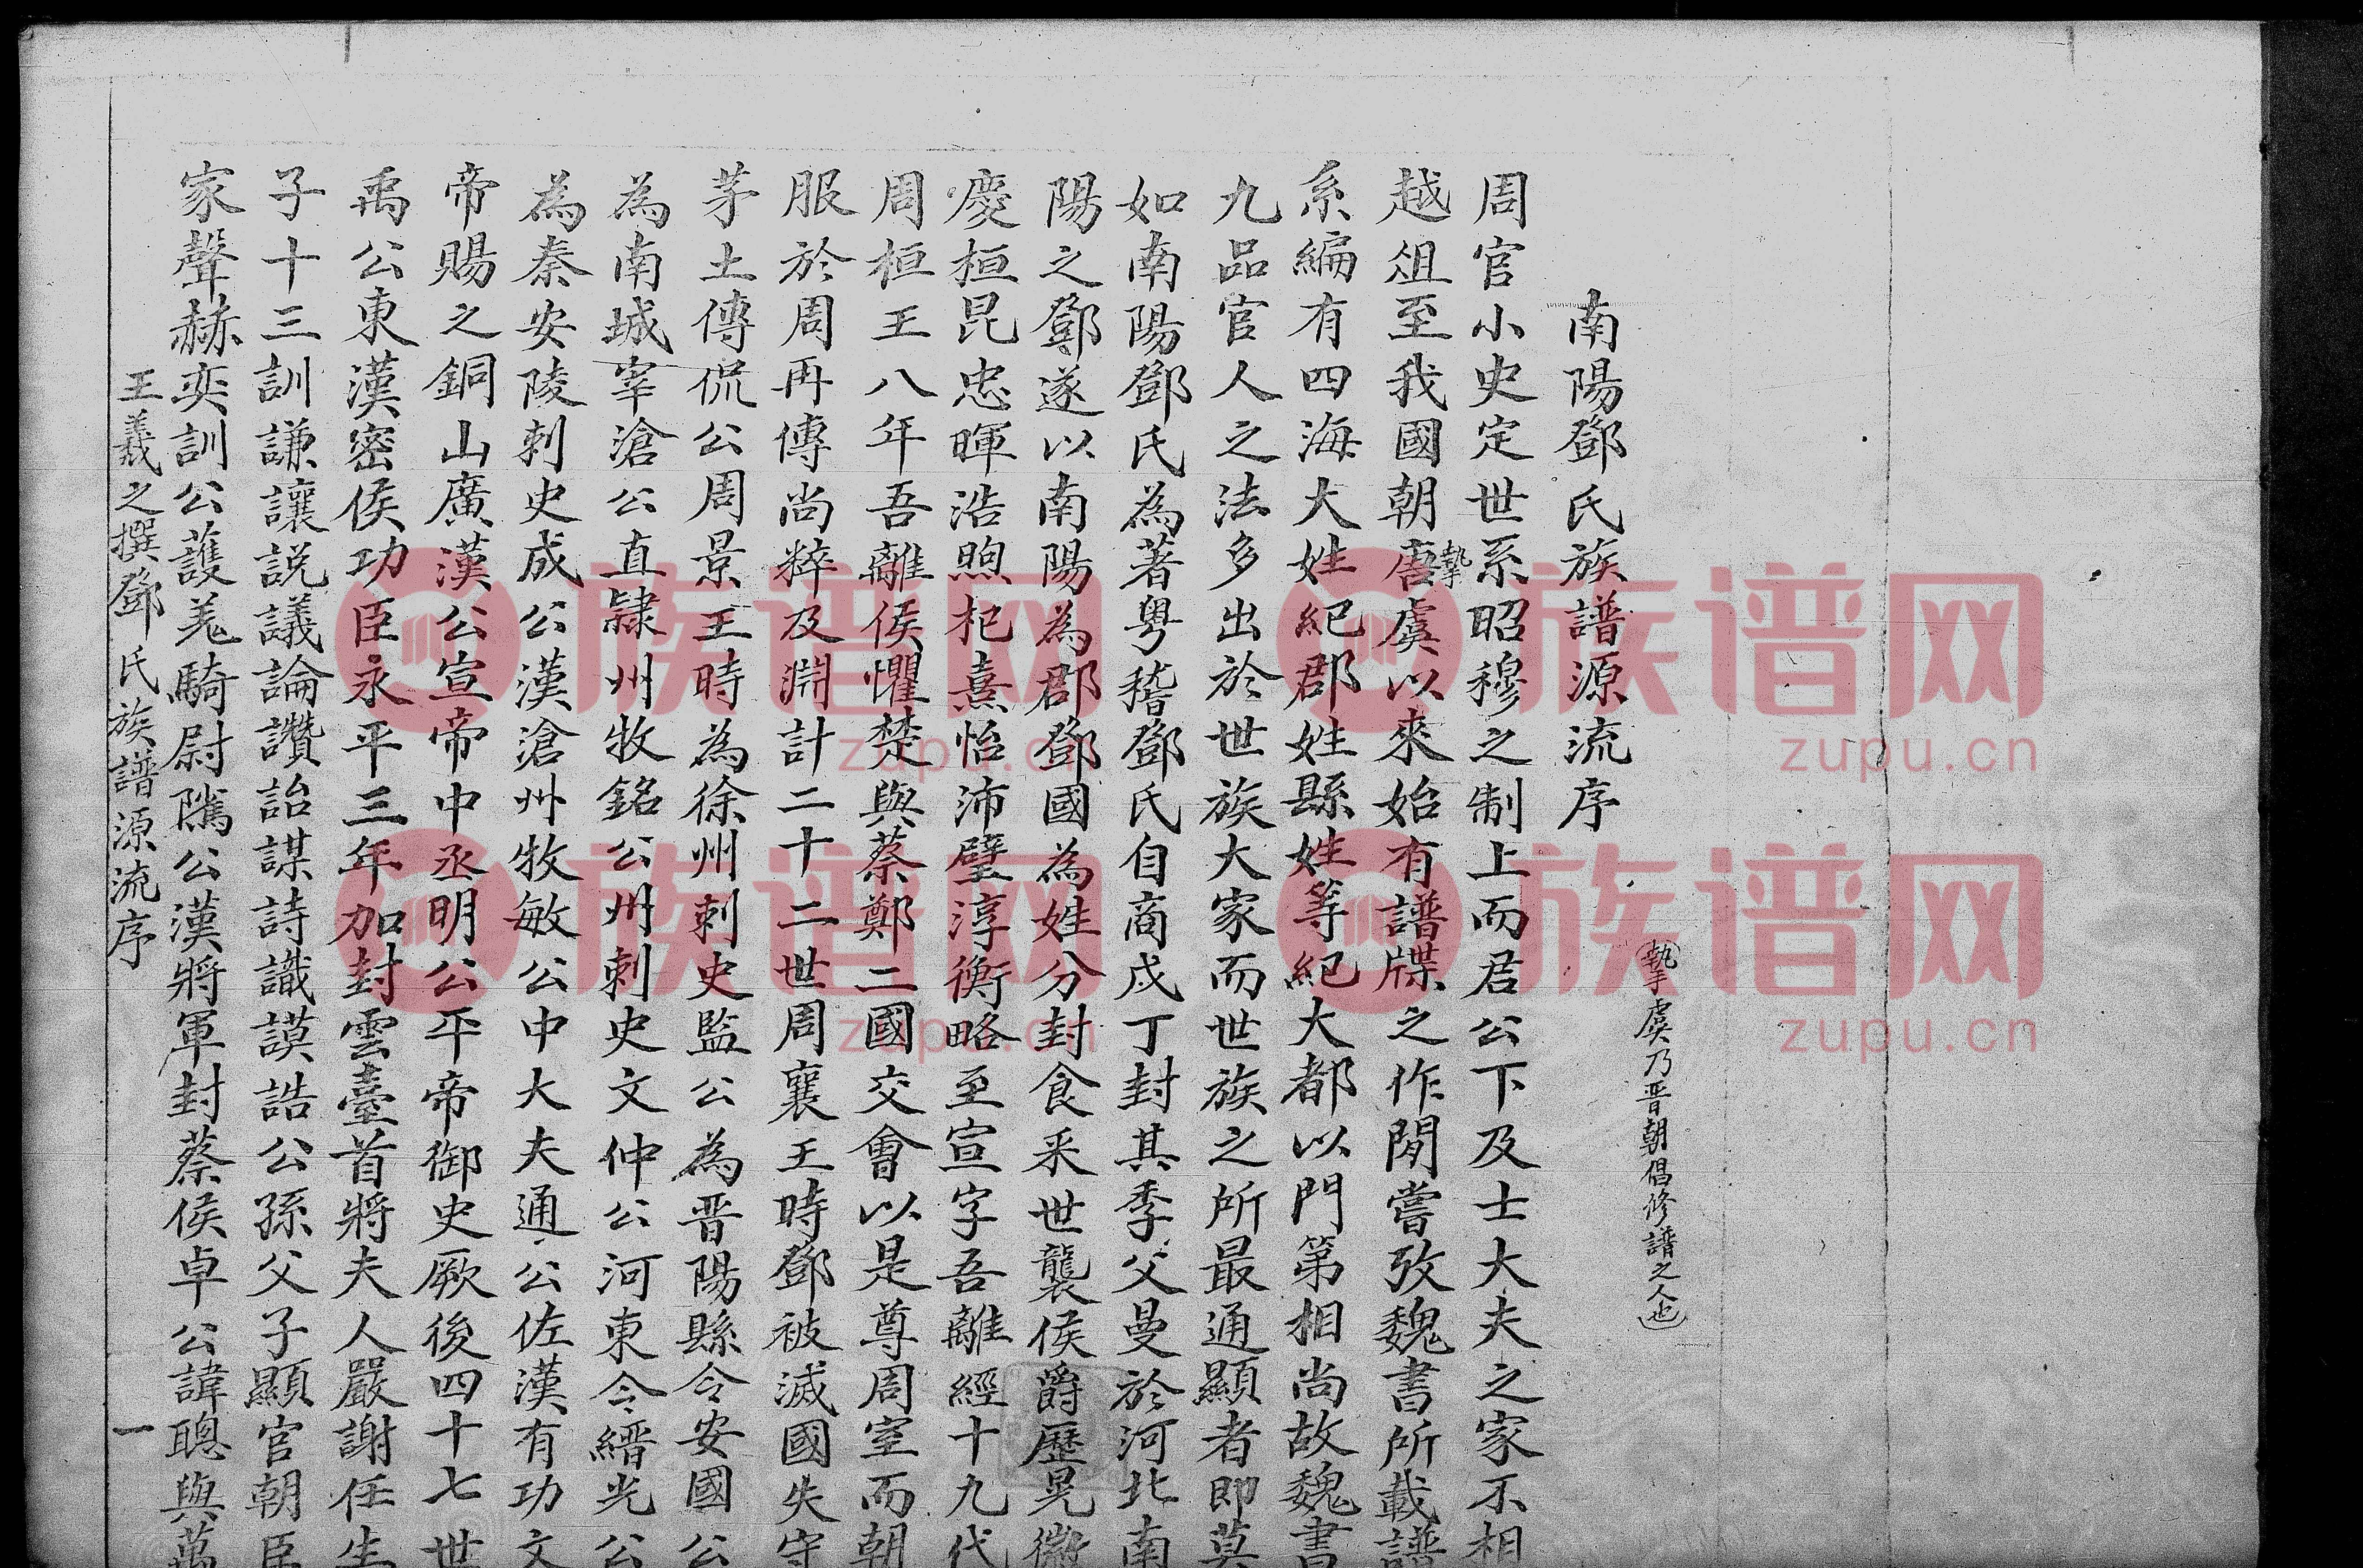 摯虞乃晋朝倡修譜之人也
南陽鄧氏族譜源流序
周官小史定世系昭穆之制上而君公下及士大夫之家不相
越俎至我國朝唐摯虞以來始有譜牒之作閒嘗攷魏書所載譜
系編有四海大姓紀郡姓縣姓等紀大都以門第相尚故魏書
九品官人之法多出於世族大家而世族之所最通顯者即莫
如南陽鄧氏為著粤稽鄧氏自商戍丁封其季父曼於河北南
陽之鄧遂以南陽為郡鄧國為姓分封食釆世襲侯爵歷晃徽
慶桓昆忠暉浩煦杞熹怡沛璧淳衡略至宣字吾離經十九代
周桓王八年吾離侯懼楚與蔡鄭二國交會以是尊周室而朝
服於周再傳尚粹及淵計二十二世周襄王時鄧被滅國失守
茅土傳侃公周景王時為徐州刺史監公為晋陽縣令安國公
為南城宰滄公直隸州牧銘公州刺史文仲公河東令縉光公
為秦安陵刺史成公漢滄州牧敏公中大夫通公佐漢有功文
帝賜之銅山廣漢公宣帝中丞明公平帝御史厥後四十七世
禹公東漢密侯功臣永平三年加封雲臺首將夫人嚴謝任生
子十三訓謙讓説議論讚詒謀詩識謨誥公孫父子顯官朝臣
家聲赫奕訓公護羗騎尉隲公漢將軍封蔡侯卓公諱聰與萬
王羲之撰鄧氏族譜源流序 一
族谱网 zupu.cn
族谱网 zupu.cn
族谱网 zupu.cn
族谱网 zupu.cn